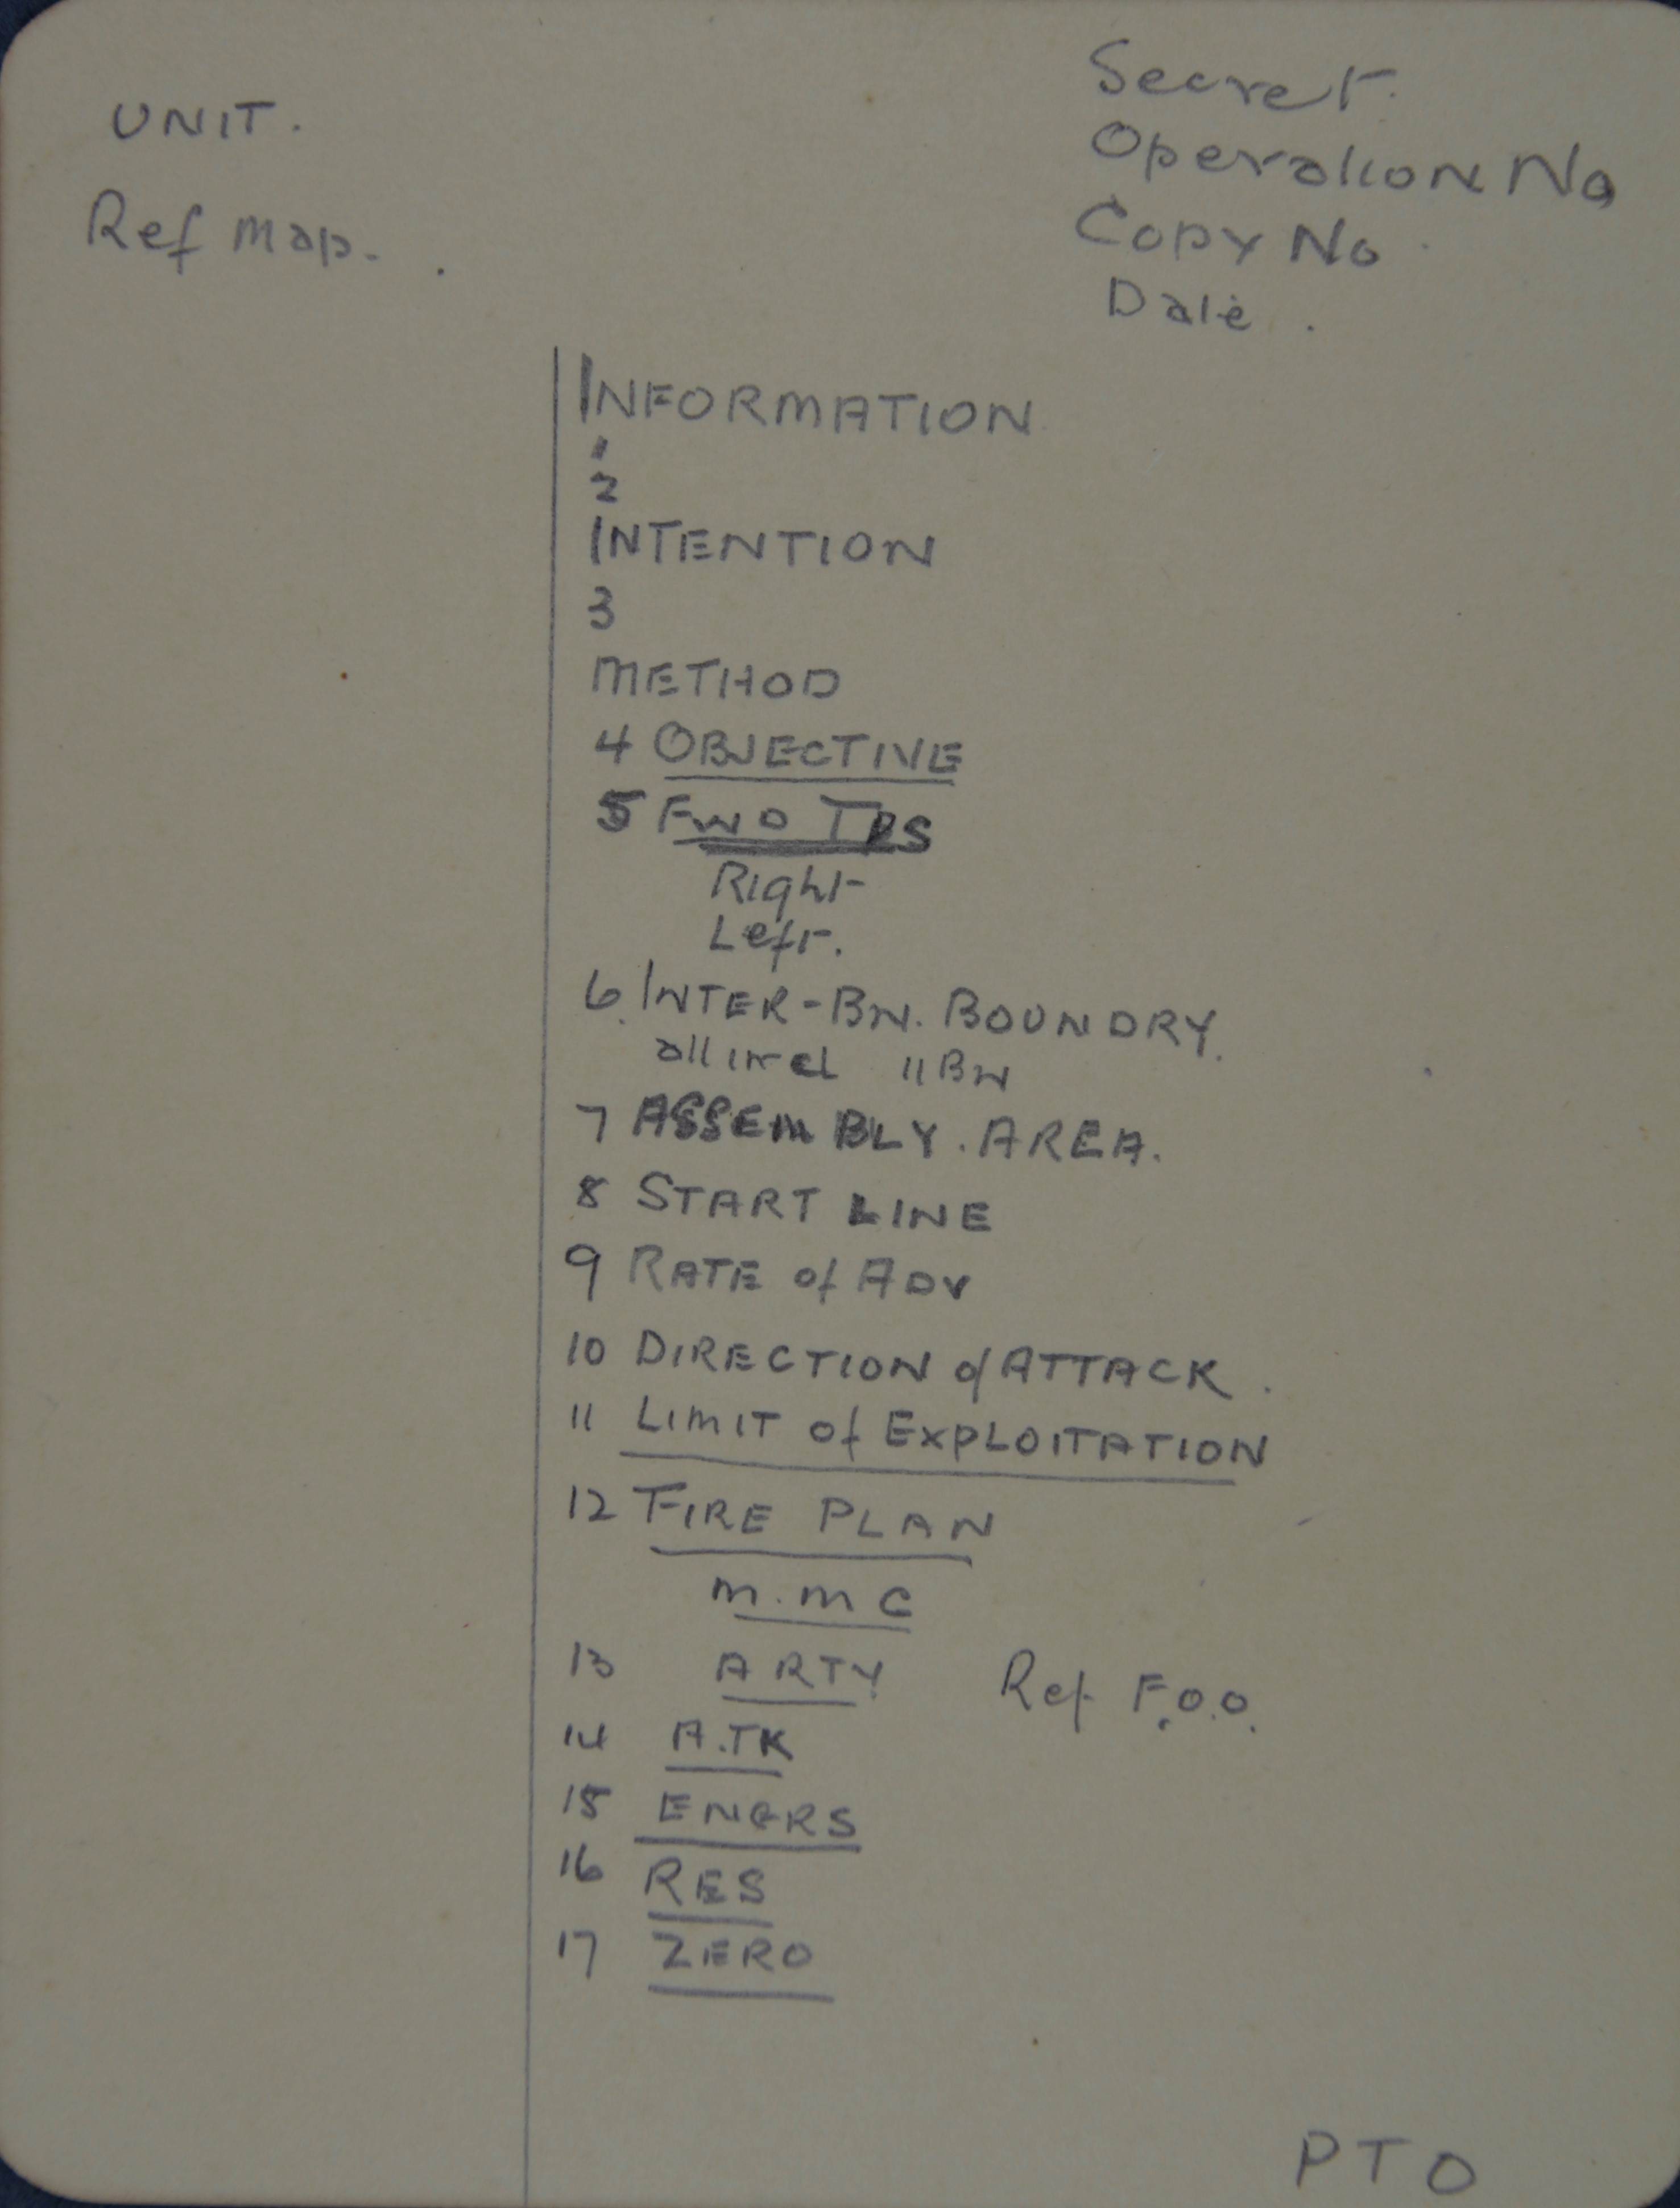 UNIT.
Ref map.
Secret.
Operation No
Copy No
Date.
INFORMATION
1
2
INTENTION
3
METHOD
4 OBJECTIVE
5 FWD TPS
Right
Left.
6. INTER-BN. BOUNDRY.
all incl 11 BN
7 ASSEMBLY. AREA.
8 START LINE
9 RATE of ADV
10 DIRECTION of ATTACK.
11 LIMIT of EXPLOITATION
12 FIRE PLAN
m.m G
13 ARTY Ref F.O.O.
14 A.TK
15 ENGRS
16 RES
17 ZERO
PTO